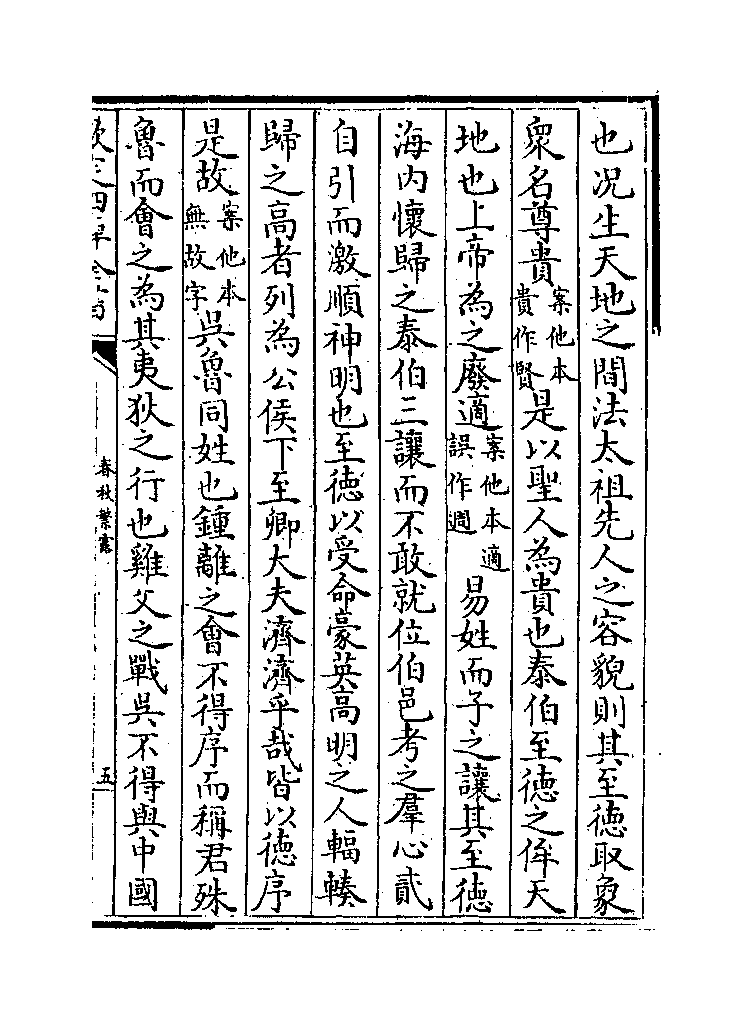 也况生天地之間法太祖先人之容貌則其至德取象
衆名尊貴案他本貴作賢是以聖人為貴也泰伯至德之侔天
地也上帝為之廢適案他本適誤作週易姓而子之讓其至德
海内懷歸之泰伯三讓而不敢就位伯邑考之羣心貳
自引而激順神明也至德以受命豪英高明之人輻輳
歸之高者列為公侯下至卿大夫濟濟乎哉皆以德序
是故案他本無故字吳魯同姓也鍾離之會不得序而稱君殊
魯而會之為其夷狄之行也雞父之戰吳不得與中國
春秋繁露
五